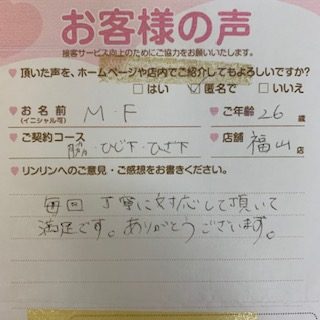 お客様の声
接客サービス向上のためにご協力をお願いいたします。
頂いた声を、ホームページや店内でご紹介してもよろしいですか?
□はい ☑匿名で □いいえ
お名前 (イニシャル可) M・F ご年齢 26 歳
ご契約コース 脇・ひじ下・ひざ下 店舗 福山 店
リンリンへのご意見・ご感想をお書きください。
毎回 丁寧に対応して頂いて
満足です。ありがとうございます。